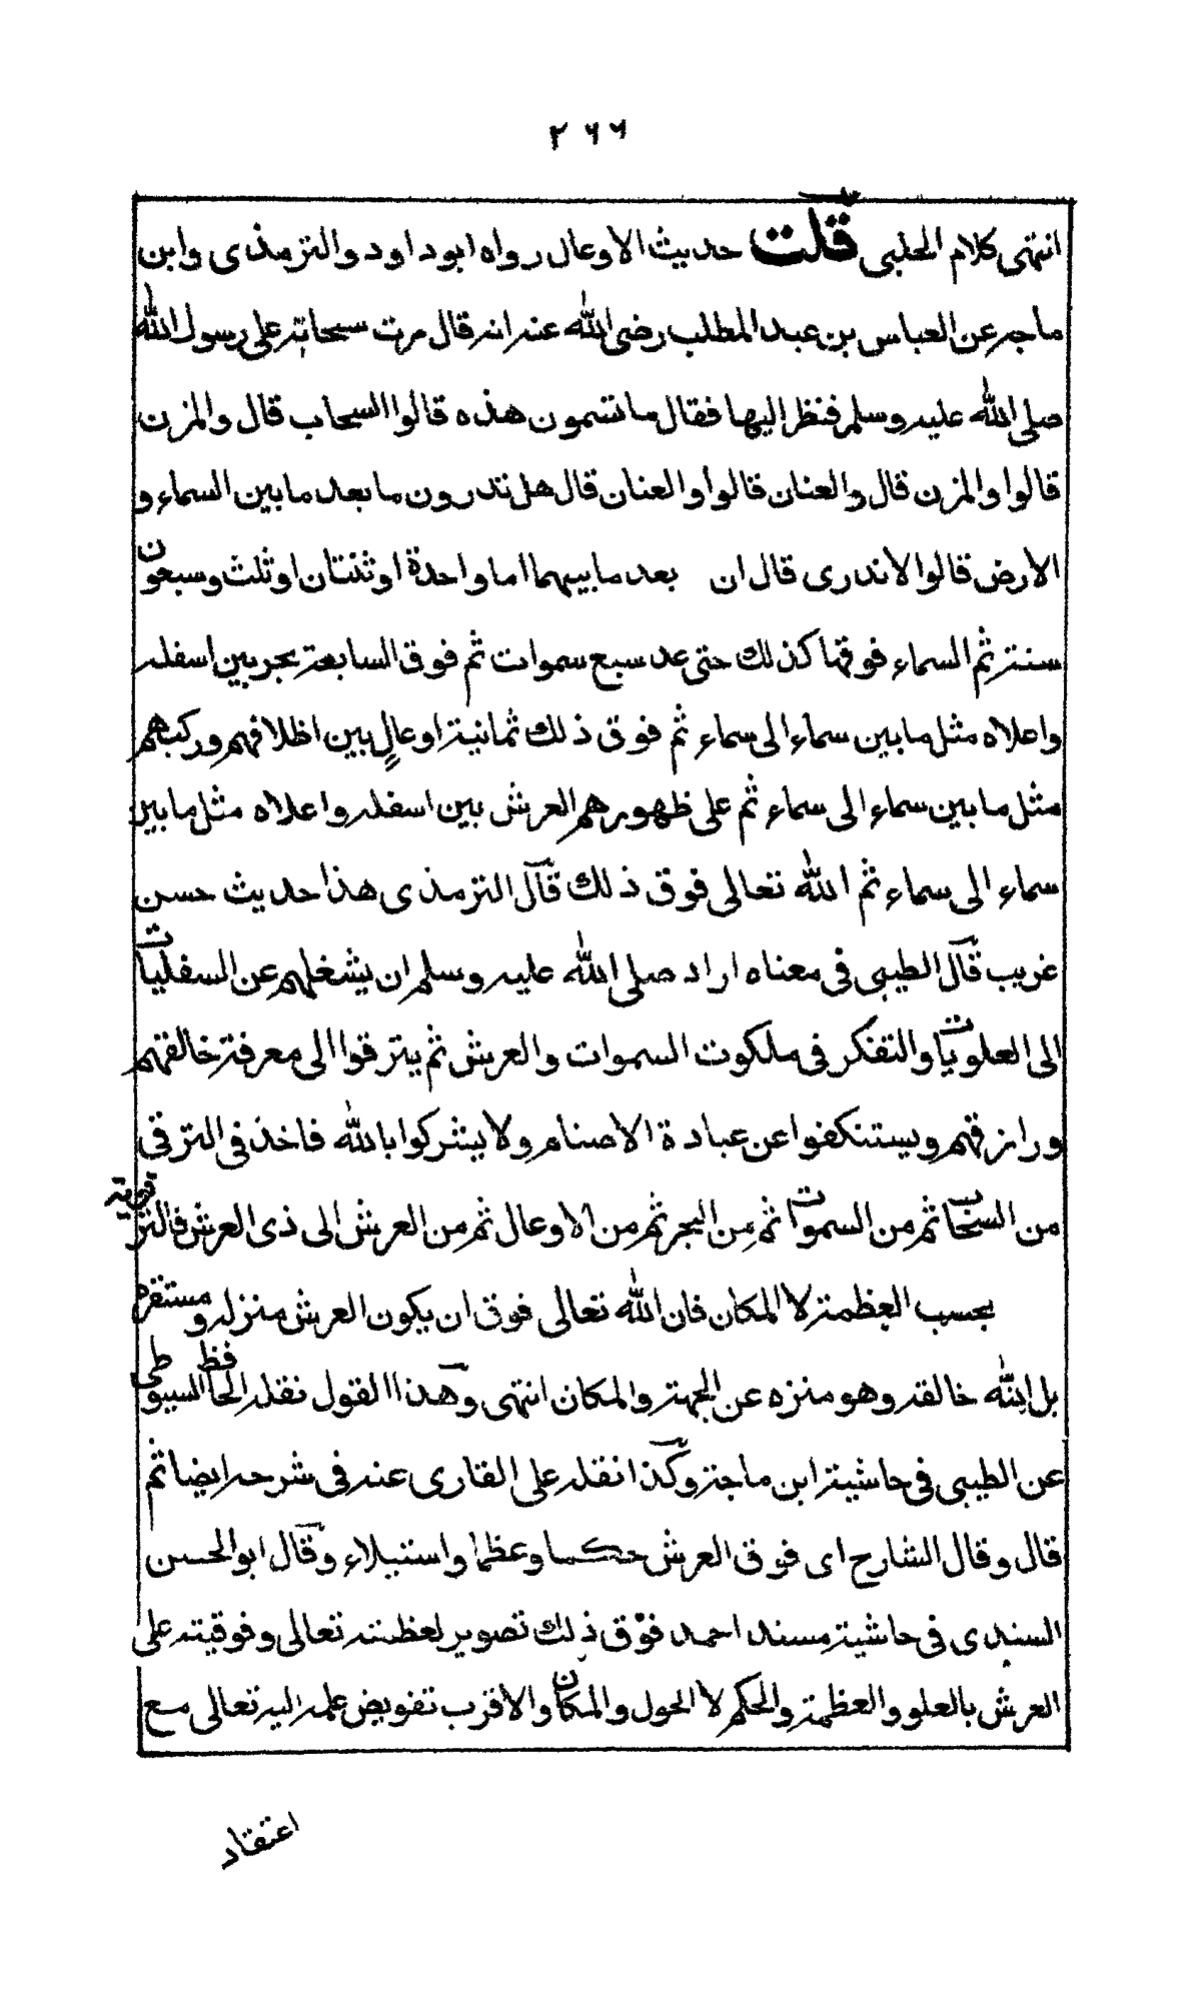 ٢٦٦
انتهى كلام الحلبي قلت حديث الاوعال رواه ابوداود والترمذى وابن
ماجه عن العباس بن عبد المطلب رضى الله عنه انه قال مرت سحابة على رسول الله
صلى الله عليه وسلم فنظر اليها فقال ما تسمون هذه قالوا السحاب قال والمزن
قالوا والمزن قال والعنان قالوا والعنان قال هل تدرون ما بعد ما بين السماء و
الارض قالوا لاندرى قال ان بعد ما بينهما اما واحدة اوثنتان اوثلث وسبعون
سنة ثم السماء فوقها كذلك حتى عد سبع سموات ثم فوق السابعة بحر بين اسفله
واعلاه مثل ما بين سماء الى سماء ثم فوق ذلك ثمانية اوعالٍ بين اظلافهم وركبهم
مثل ما بين سماء الى سماء ثم على ظهورهم العرش بين اسفله واعلاه مثل ما بين
سماء الى سماء ثم الله تعالى فوق ذلك قال الترمذى هذا حديث حسن
غريب قال الطيبى فى معناه اراد صلى الله عليه وسلم ان يشغلهم عن السفليات
الى العلويات والتفكر فى ملكوت السموات والعرش ثم يترقوا الى معرفة خالقهم
ورازقهم ويستنكفوا عن عبادة الاصنام ولا يشركوا بالله فاخذ فى الترقى
من السحاب ثم من السموات ثم من البحر ثم من الاوعال ثم من العرش الى ذى العرش فالترقى
بحسب العظمة لا المكان فان الله تعالى فوق ان يكون العرش منزله ومستقره
بل الله خالقه وهو منزه عن الجهة والمكان انتهى وهذا القول نقله الحافظ السيوطى
عن الطيبى فى حاشية ابن ماجة وكذا نقله على القارى عنه فى شرحه ايضا ثم
قال وقال الشارح اى فوق العرش حكما وعظما واستيلاء وقال ابو الحسن
السندى فى حاشية مسند احمد فوق ذلك تصوير لعظمته تعالى وفوقيته على
العرش بالعلو والعظمة والحكم لا الحول والمكان والاقرب تفويض علمه اليه تعالى مع
اعتقاد